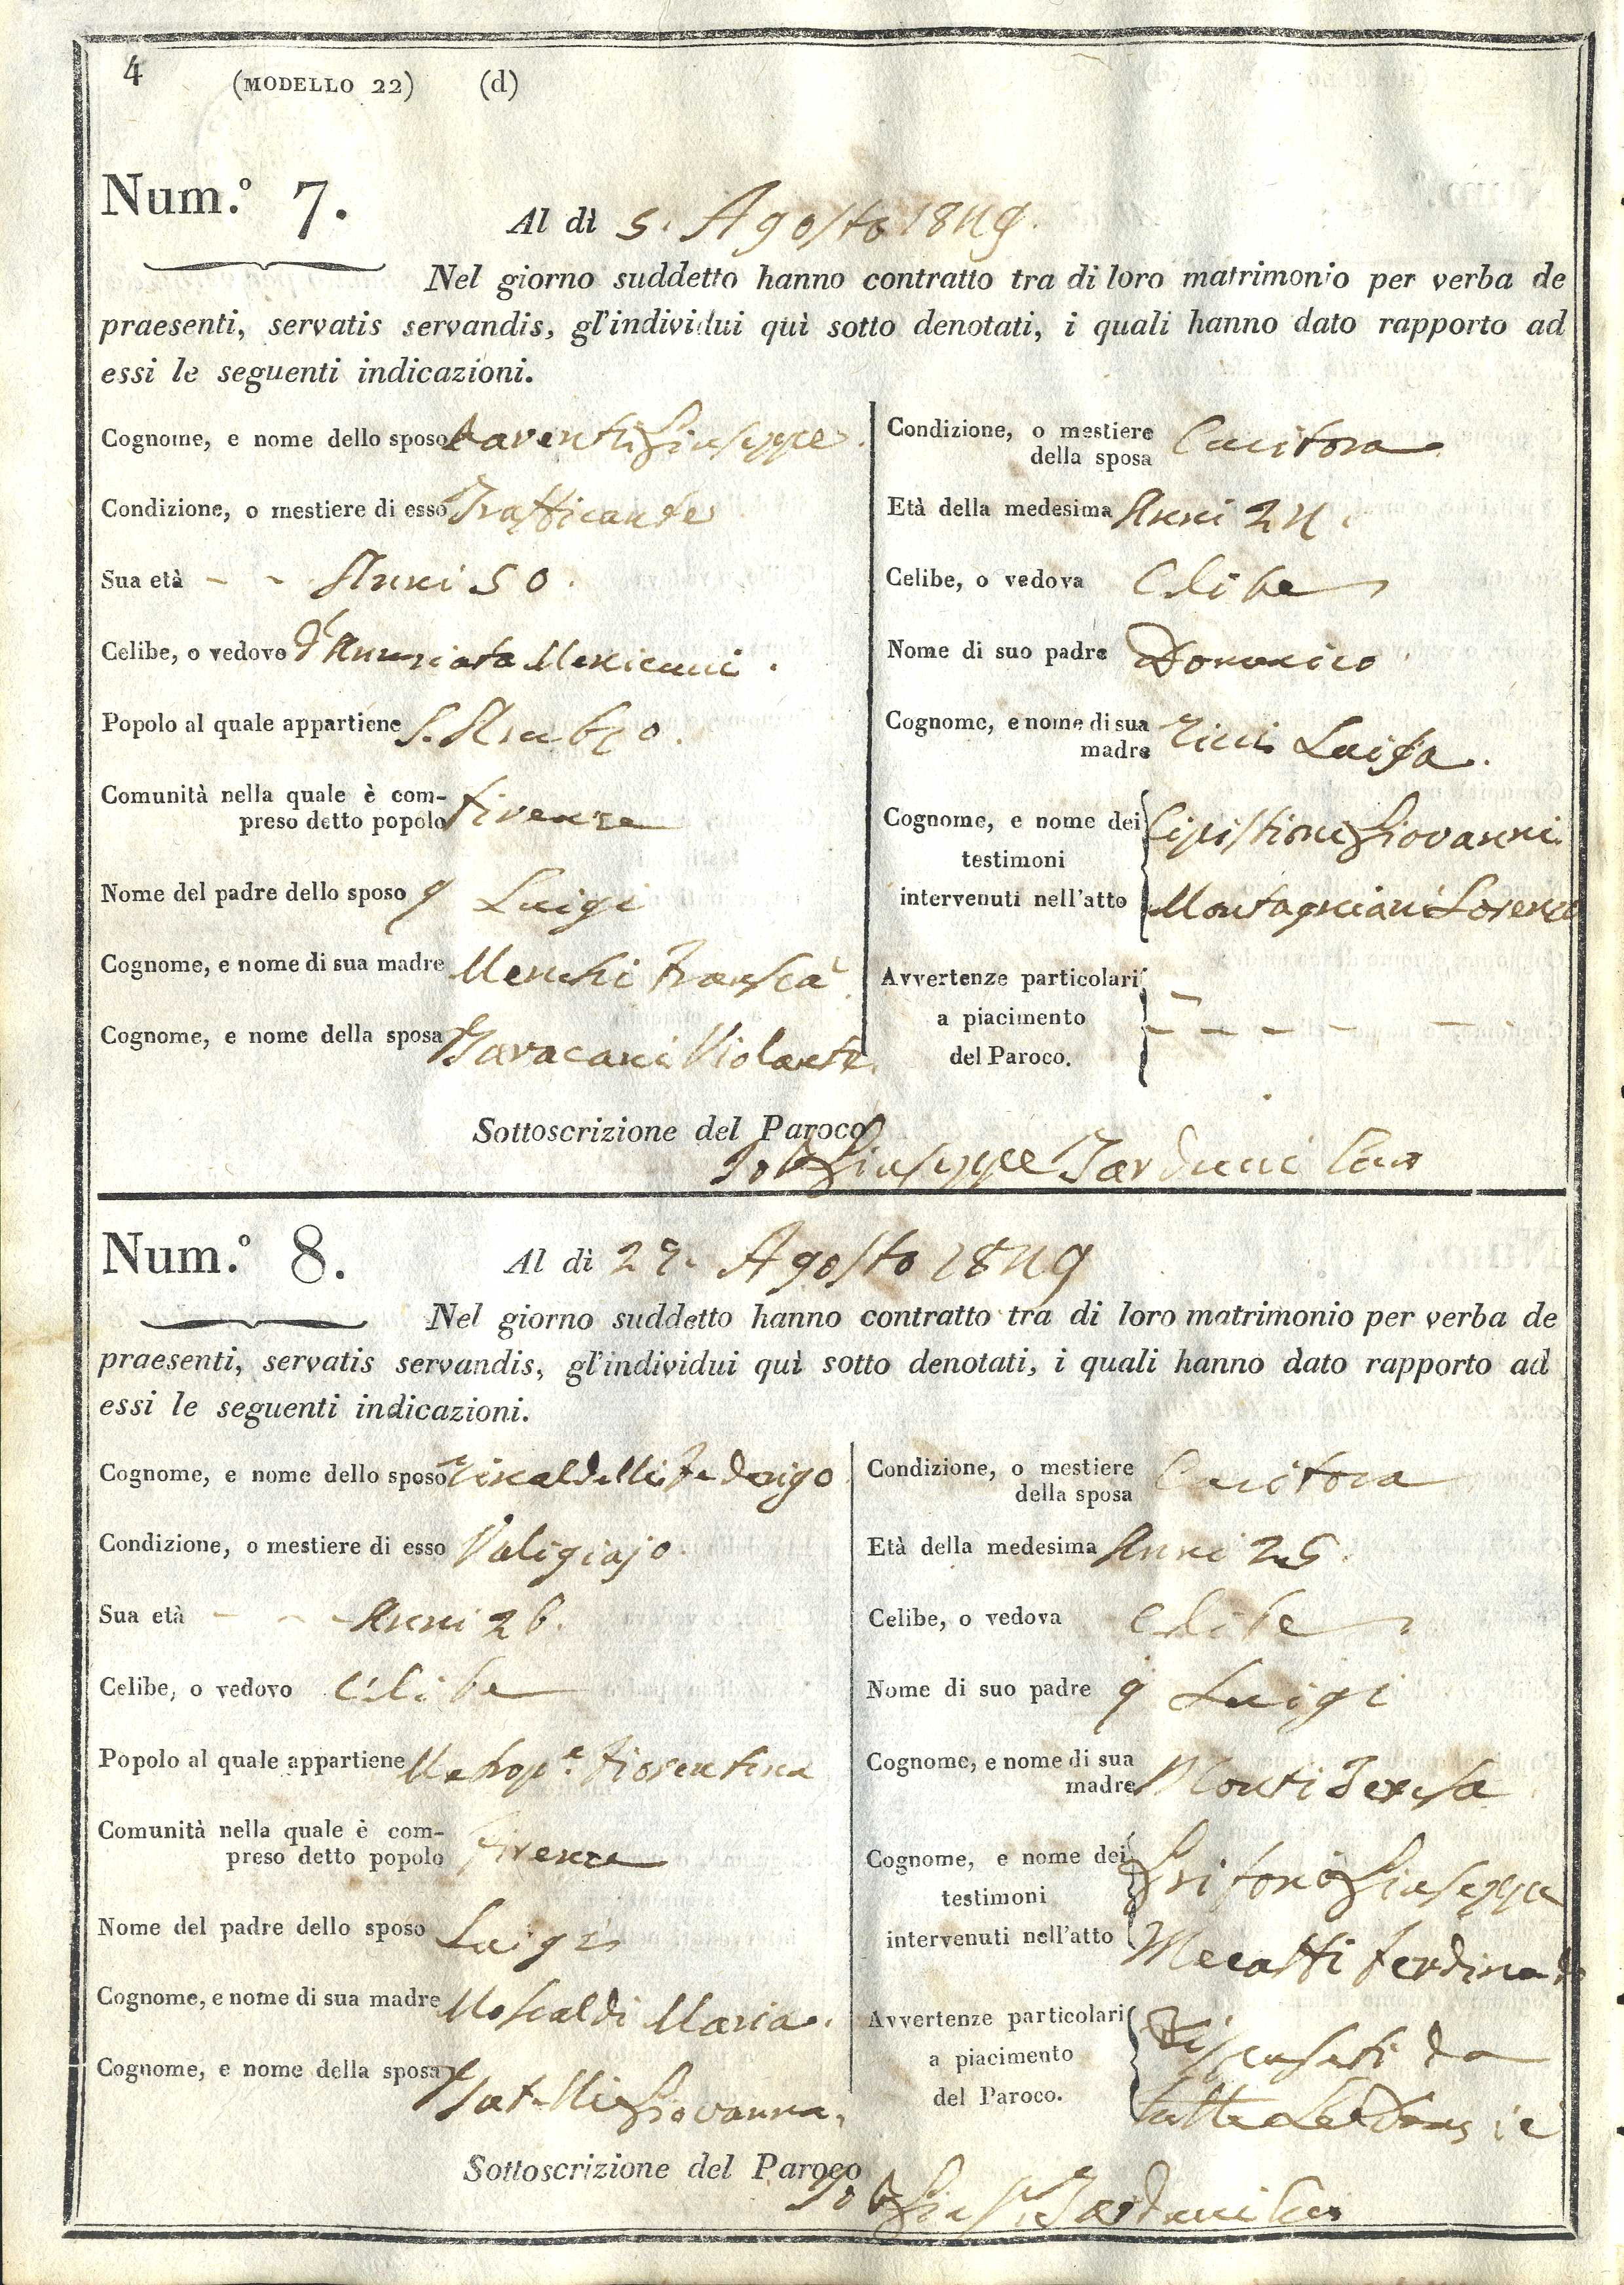 4
(MODELLO 22) (d)
Num.º 7.
Al dì 5. Agosto 1849.
Nel giorno suddetto hanno contratto tra di loro matrimonio per verba de
praesenti, servatis servandis, gl'individui quì sotto denotati, i quali hanno dato rapporto ad
essi le seguenti indicazioni.
Cognome, e nome dello sposo Laventi Giuseppe.
Condizione, o mestiere di esso Trafficante
Sua età - - Anni 50.
Celibe, o vedovo d' Annunziata
Popolo al quale appartiene S. Ambro.
Comunità nella quale è com-
preso detto popolo Firenze
Nome del padre dello sposo q Luigi
Cognome, e nome di sua madre Menchi Fransca
Cognome, e nome della sposa Baracani Violante.
Condizione, o mestiere
della sposa Cucitora
Età della medesima Anni 24.
Celibe, o vedova Celibe
Nome di suo padre Domenico
Cognome, e nome di sua
madre Ricci Luisa.
Cognome, e nome dei
testimoni
intervenuti nell'atto
Giovanni
Montagniani Lorenzo
Avvertenze particolari
a piacimento
del Paroco.
Sottoscrizione del Paroco
Giuseppe Tarduci Cur
Num.º 8.
Al dì 29. Agosto 1849
Nel giorno suddetto hanno contratto tra di loro matrimonio per verba de
praesenti, servatis servandis, gl'individui quì sotto denotati, i quali hanno dato rapporto ad
essi le seguenti indicazioni.
Cognome, e nome dello sposo Federigo
Condizione, o mestiere di esso Valigiajo
Sua età - - Anni 26.
Celibe, o vedovo Celibe
Popolo al quale appartiene Metrop.e Fiorentina
Comunità nella quale è com-
preso detto popolo Firenze
Nome del padre dello sposo Luigi
Cognome, e nome di sua madre Moscaldi Maria.
Cognome, e nome della sposa Batelli Giovanna.
Condizione, o mestiere
della sposa Cucitora
Età della medesima Anni 25.
Celibe, o vedova Celibe
Nome di suo padre q Luigi
Cognome, e nome di sua
madre Monti Teresa
Cognome, e nome dei
testimoni
intervenuti nell'atto
Grifoni Giuseppe
Mecatti Ferdinando
Avvertenze particolari
a piacimento
del Paroco.
Dispensati da
tutte Le
Sottoscrizione del Paroco
Gius. Tarduci Cur